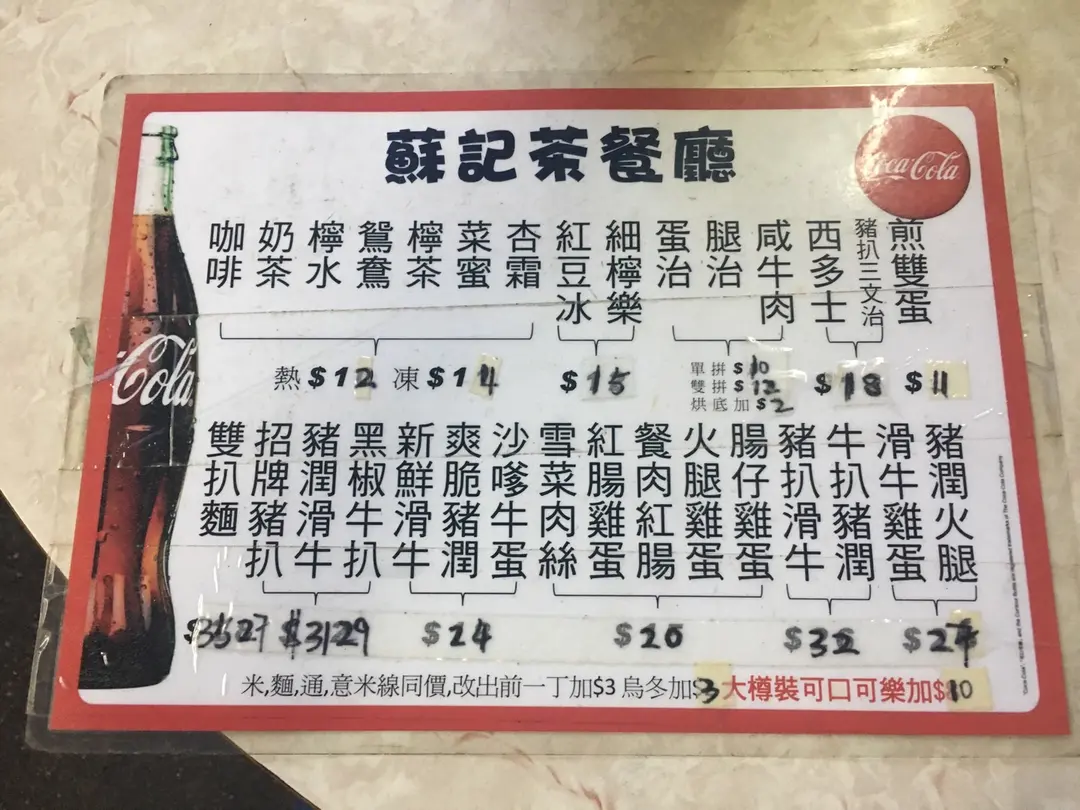 蘇記茶餐廳
Coca-Cola
Cola
咖啡
奶茶
檸水
鴛鴦
檸茶
菜蜜
杏霜
紅豆冰
細檸樂
蛋治
腿治
咸牛肉
西多士
豬扒三文治
煎雙蛋
熱$12 凍$14
$15
單拼$10
雙拼$12
烘底加$2
$18
$11
雙扒麵
招牌豬扒
豬潤滑牛
黑椒牛扒
新鮮滑牛
爽脆豬潤
沙嗲牛蛋
雪菜肉絲
紅腸雞蛋
餐肉紅腸
火腿雞蛋
腸仔雞蛋
豬扒滑牛
牛扒豬潤
滑牛雞蛋
豬潤火腿
$3527
$3129
$24
$20
$32
$24
米,麵,通,意米線同價,改出前一丁加$3 烏冬加$3 大樽裝可口可樂加$10